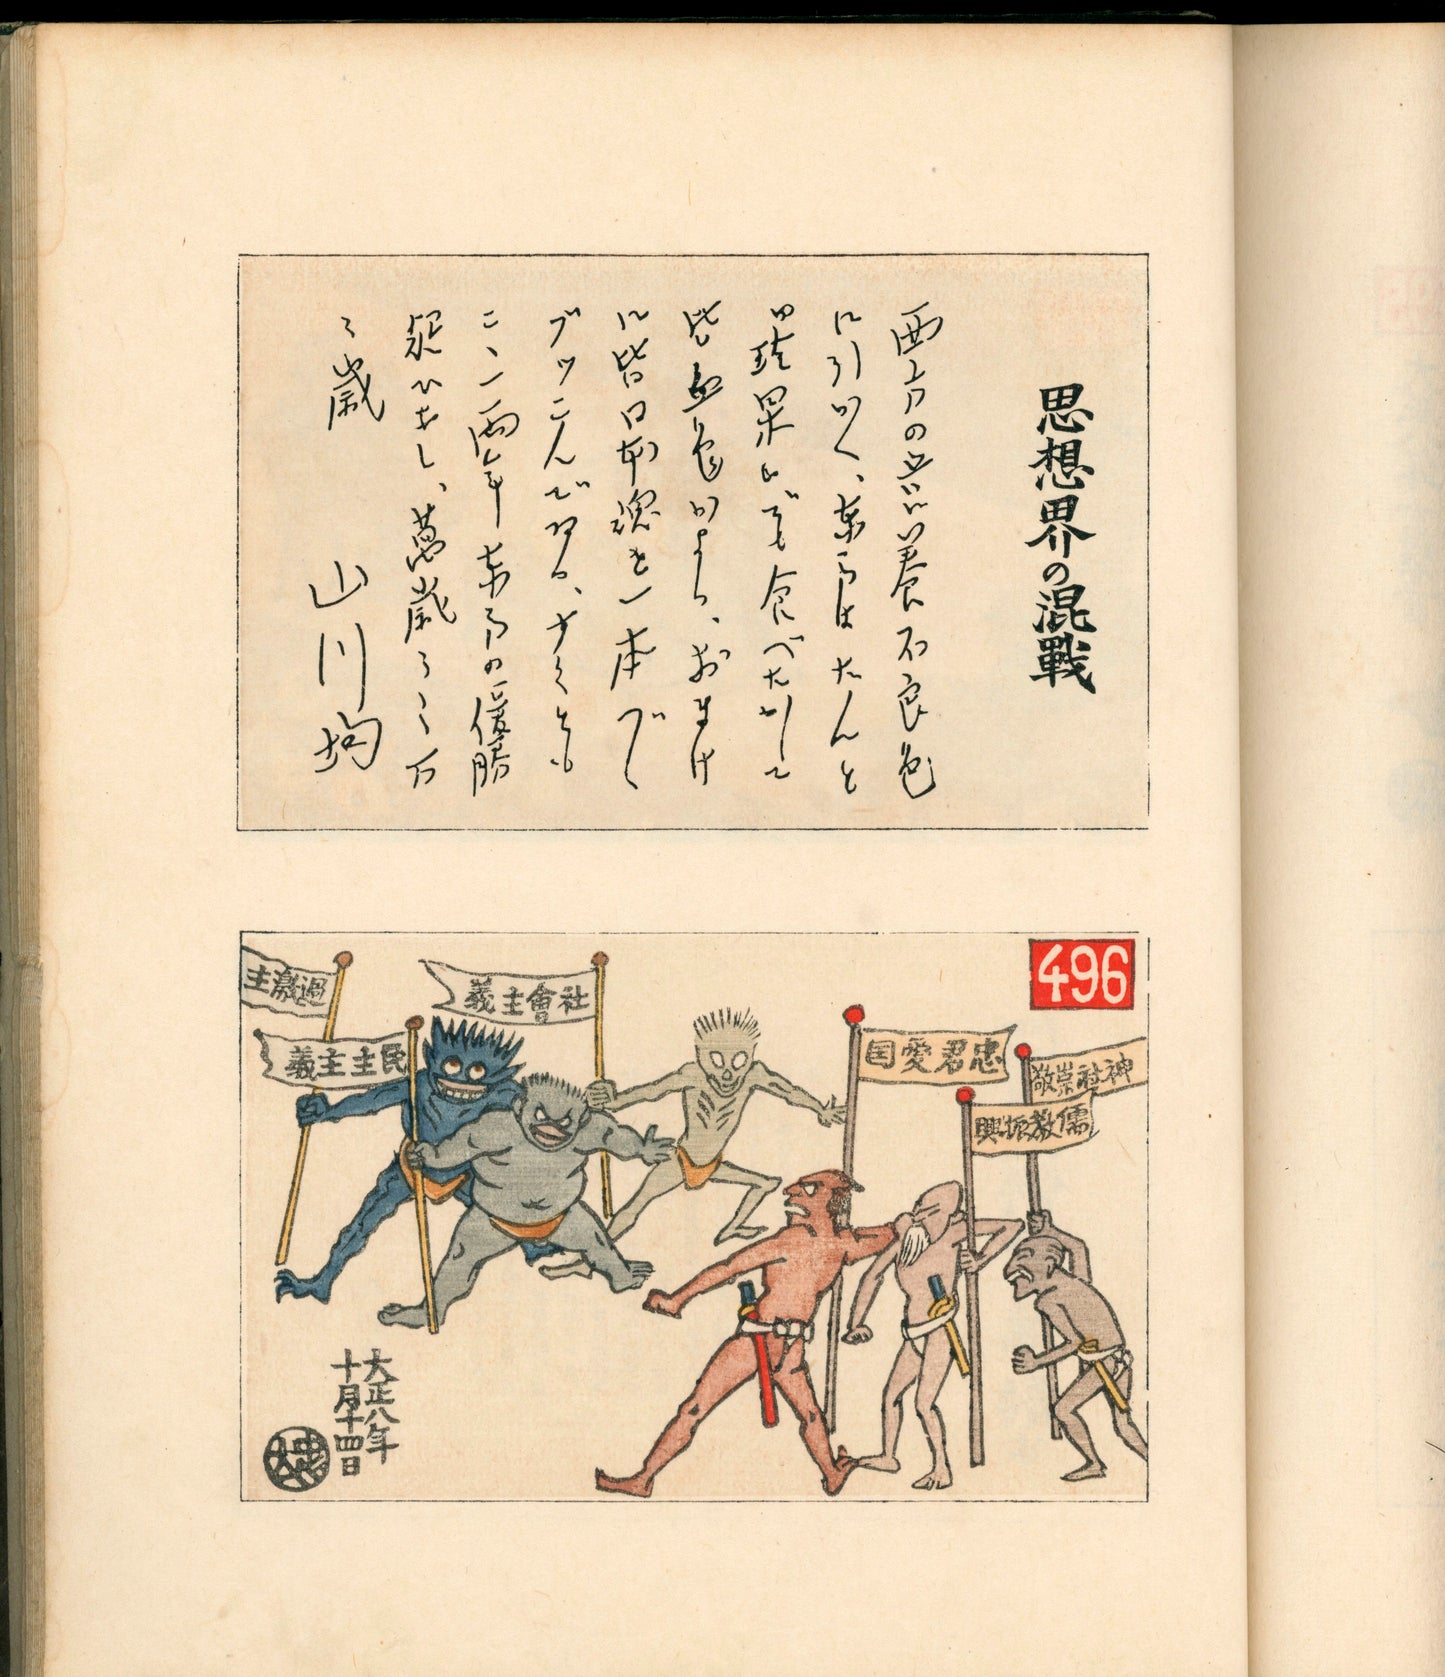 思想界の混戰
西方の養不良色
に引かへ、東方はたんと
でも食べたかして
皆血色がよい、おまけ
に皆日本魂を一本づゝ
ブッこんでゐる、少くとも
こゝ一両年東方の優勝
疑ひなし、萬歳々々万
々歳
山川均
496
神社崇敬
忠君愛国
儒教振興
社會主義
過激主
民主主義
大正八年
十月十四日
忠太